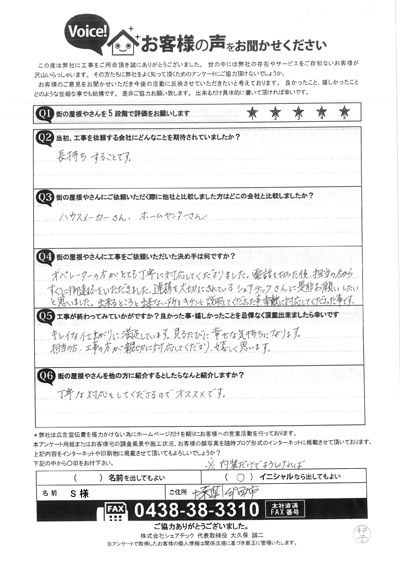 Voice!
お客様の声をお聞かせください
この度は弊社に工事をご用命頂き誠にありがとうございました。世の中には弊社の存在やサービスをご存知ないお客様が
沢山いらっしゃいます。その方たちに弊社をよく知って頂くためのアンケートにご協力頂けないでしょうか。
お客様のご意見をお聞かせいただき今後の活動に反映させていただきたいと考えております。良かったこと、嬉しかったこと
どのような些細な事でも結構です。是非ご協力お願い致します。出来るだけ具体的に書いて頂ければ幸いです。
Q1 街の屋根やさんを5段階で評価をお願いします ★ ★ ★ ★ ★
Q2 当初、工事を依頼する会社にどんなことを期待されていましたか?
長持ちすることです。
Q3 街の屋根やさんにご依頼いただく際に他社と比較しました方はどこの会社と比較しましたか?
ハウスメーカーさん、ホームセンターさん
Q4 街の屋根やさんに工事をご依頼いただいた決め手は何ですか?
オペレーターの方がとても丁寧に対応してくださりました。電話を切った後、担当の方から
すぐに御連絡をいただきました。連携を大切にされているシェアテックさんに是非お願いしたい
と思いました。出来るところと出来ない所をキチンと説明してくださった事、素敵に対応してくださった事です。
Q5 工事が終わってみていかがですか?良かった事・嬉しかったことを忌憚なく頂戴出来ましたら幸いです
キレイな仕上がりに満足しています。見るたびに幸せな気持ちになります。
担当の方、工事の方が親切に対応してくださり、嬉しく思います。
Q6 街の屋根やさんを他の方に紹介するとしたらなんと紹介しますか?
丁寧な対応をしてくださるのでオススメです。
*弊社は広告宣伝費を極力かけない為にホームページだけを頼りにお客様への営業活動を行っております。
本アンケート用紙またはお客様宅の調査風景や施工状況、お客様の顔写真を随時ブログ形式のインターネットに掲載させて頂いております。
上記内容をインターネットや印刷物に掲載させて頂いてもよろしいでしょうか?
下記の中から〇印をお付下さい。
( )名前を出してもよい (〇)イニシャルなら出してもよい
名前 S様 ご住所 千葉県
FAX 0438-38-3310 本社直通 FAX番号
ご協力ありがとうございました。
株式会社シェアテック 代表取締役 大久保 誠二
※アンケートで取得したお客様の個人情報は関係法規に基づき厳正に管理いたします。